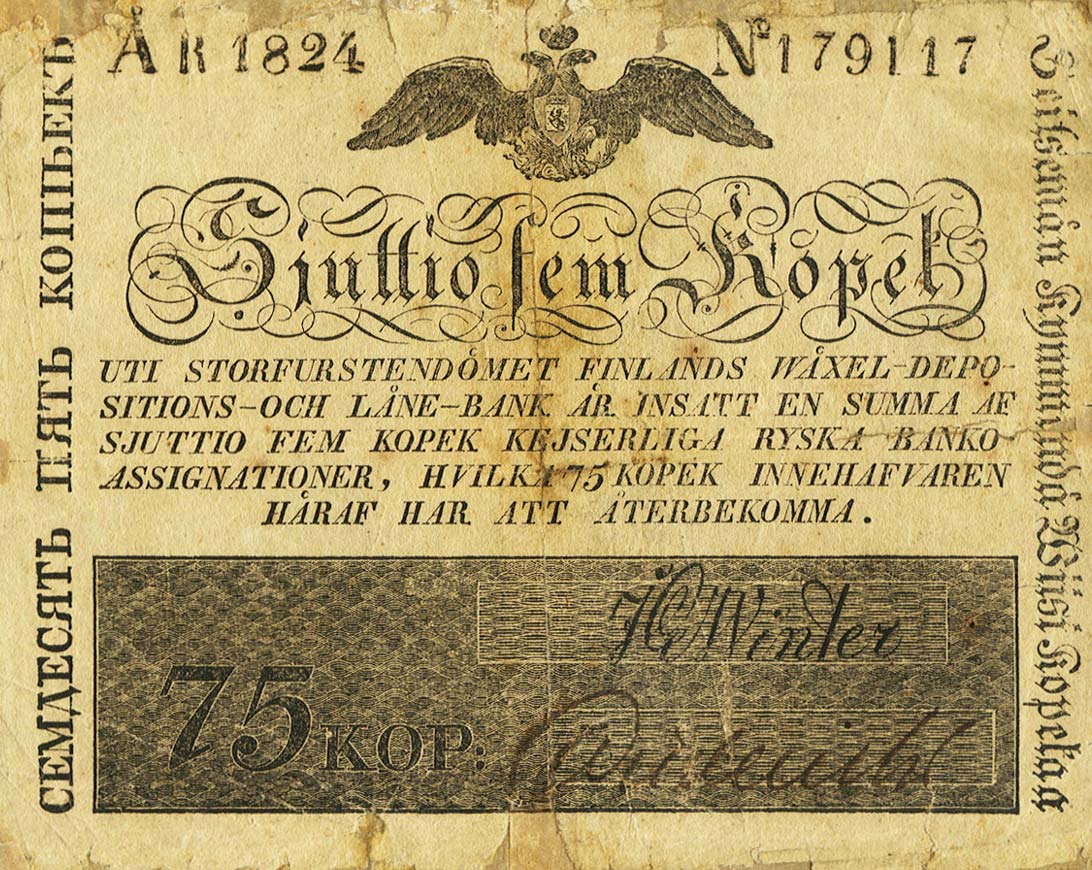 ÅR 1824
No 179117
СЕМДЕСЯТЬ ПЯТЬ КОПЬЕКЪ
Sjuttio fem Kopek
UTI STORFURSTENDÖMET FINLANDS WÄXEL-DEPO-
SITIONS-OCH LÅNE-BANK ÄR INSATT EN SUMMA AF
SJUTTIO FEM KOPEK KEJSERLIGA RYSKA BANKO
ASSIGNATIONER, HVILKA 75 KOPEK INNEHAFVAREN
HÄRAF HAR ATT ÅTERBEKOMMA.
Winter
75 KOP:
Seitsemän Kymmendä Wiisi Kopekaa